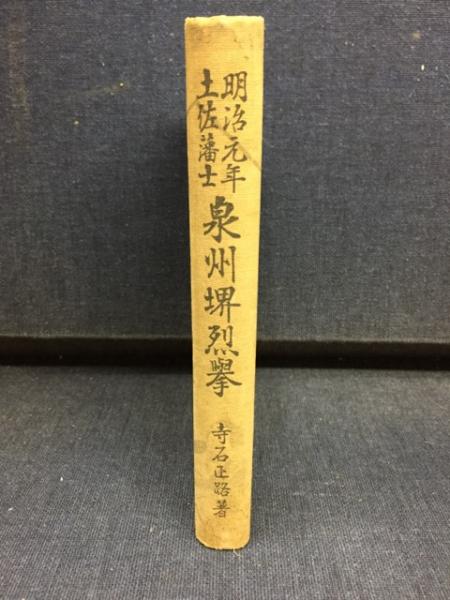 明治元年
土佐藩士
泉州堺烈擧
寺石正路著